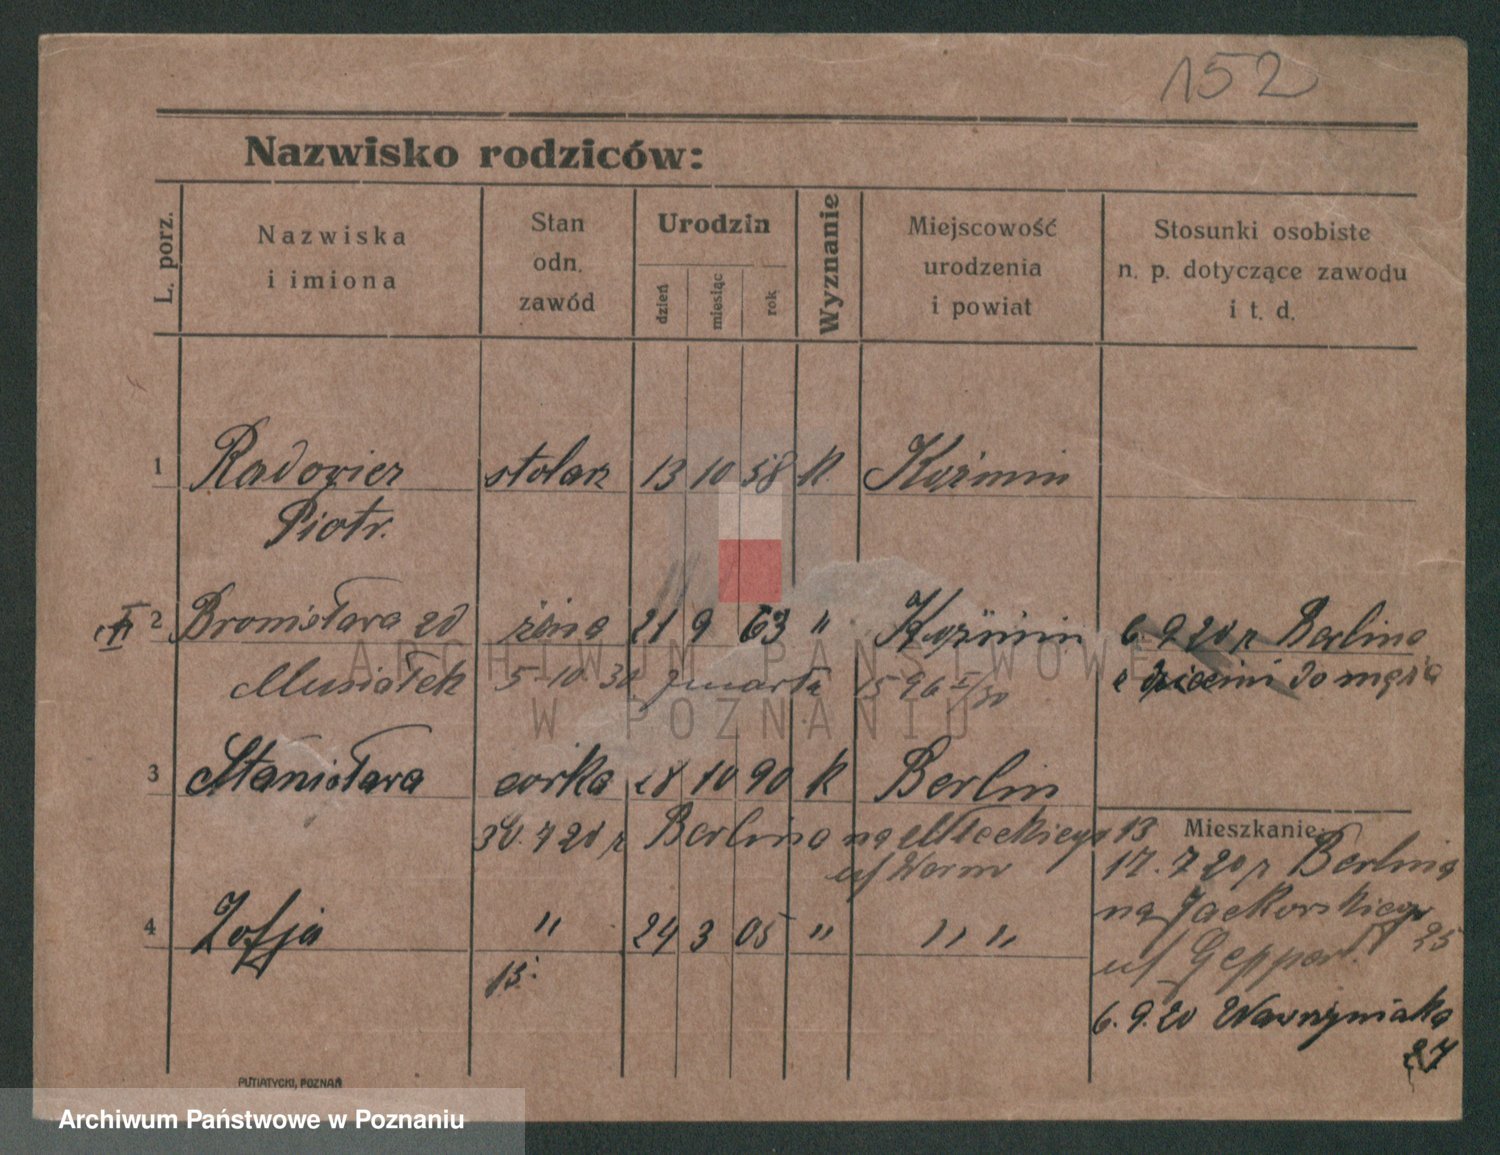 152
Nazwisko rodziców:
L. porz.
Nazwiska
i imiona
Stan
odn.
zawód
Urodzin
dzień
miesiąc
rok
Wyznanie
Miejscowość
urodzenia
i powiat
Stosunki osobiste
n. p. dotyczące zawodu
i t. d.
1 Radojewski stolarz 13 10 58 k. Koźmin
Piotr.
2 Bronisława zd żona 21 9 63 " Koźmin 6.9 20 z Berlina
Musiałek 5-10.30 zmarła 1596 I/30 z dziećmi do męża
3 Stanisława córka 28 10 90 k Berlin
30.7 20 z Berlina na Małeckiego 13
Mieszkanie
u/ Worm
17.7 20 z Berlina
na Jackowskiego 25
u/ Geppert
4 Zofja " 24 3 05 " " "
15.
6.9.20 Wawrzyniaka
27
PUTIATYCKI, POZNAŃ
ARCHIWUM PAŃSTWOWE
W POZNANIU
Archiwum Państwowe w Poznaniu